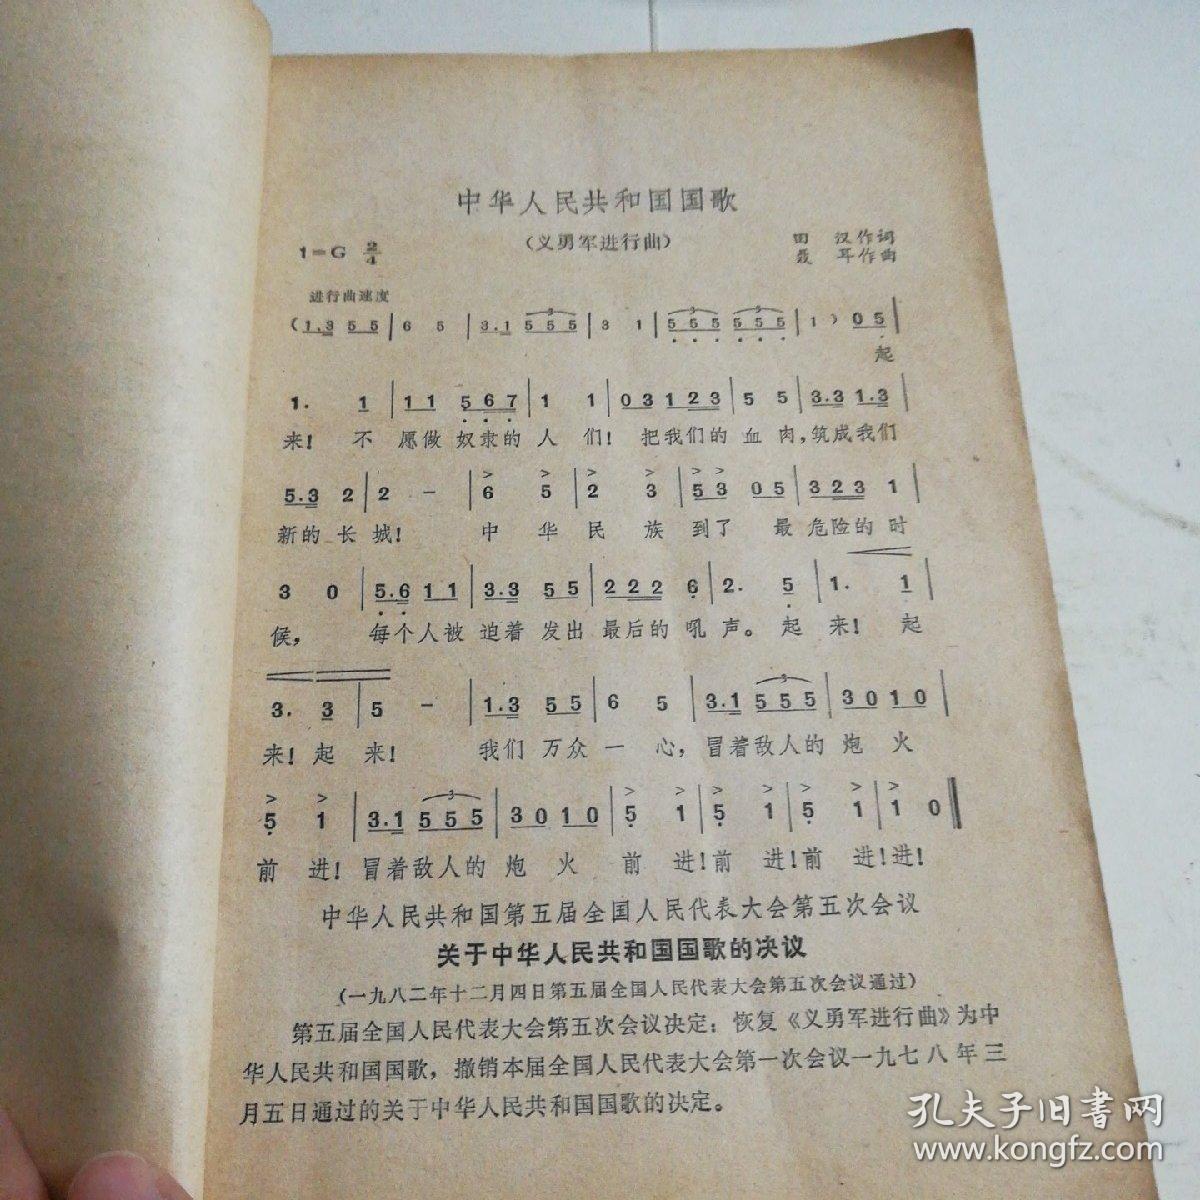 中华人民共和国国歌
(义勇军进行曲)
1=G 2/4
田 汉作词
聂 耳作曲
进行曲速度
(1.3 5 5 | 6 5 | 3.1 5 5 5 | 3 1 | 5 5 5 5 5 5 | 1 ) 0 5 |
起
1. 1 | 1 1 5 6 7 | 1 1 | 0 3 1 2 3 | 5 5 | 3.3 1.3 |
来! 不 愿做 奴隶的 人 们! 把我们的 血 肉,筑成我们
5.3 2 | 2 - | 6 5 | 2 3 | 5 3 0 5 | 3 2 3 1 |
新的 长 城! 中 华 民 族 到了 最 危险的 时
3 0 | 5.6 1 1 | 3.3 5 5 | 2 2 2 6 | 2. 5 | 1. 1 |
候, 每个人被 迫着 发出 最后的 吼 声。 起 来! 起
3. 3 | 5 - | 1.3 5 5 | 6 5 | 3.1 5 5 5 | 3 0 1 0 |
来! 起 来! 我们 万众 一 心, 冒着敌人的 炮 火
5 1 | 3.1 5 5 5 | 3 0 1 0 | 5 1 | 5 1 | 5 1 | 1 0 ‖
前 进! 冒着敌人的 炮 火 前 进!前 进!前 进!进!
中华人民共和国第五届全国人民代表大会第五次会议
关于中华人民共和国国歌的决议
(一九八二年十二月四日第五届全国人民代表大会第五次会议通过)
第五届全国人民代表大会第五次会议决定: 恢复《义勇军进行曲》为中
华人民共和国国歌, 撤销本届全国人民代表大会第一次会议一九七八年三
月五日通过的关于中华人民共和国国歌的决定。
孔夫子旧书网
www.kongfz.com